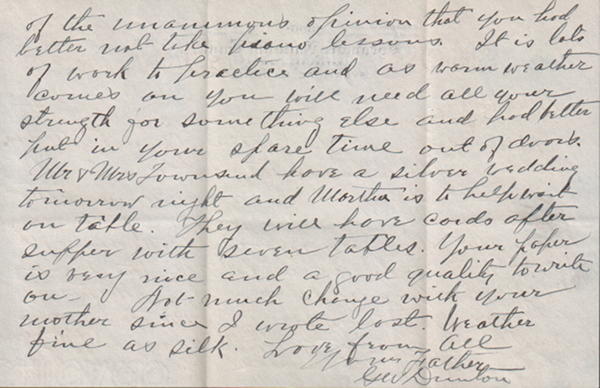 of the unanimous opinion that you had
better not take piano lessons. It is lots
of work to practice and as warm weather
comes on you will need all your
strength for something else and had better
put in your spare time out of doors.
Mr & Mrs Townsend have a silver wedding
tomorrow night and Martha is to help wait
on table. They will have cards after
supper with seven tables. Your paper
is very nice and a good quality to write
on. Not much change with your
mother since I wrote last. Weather
fine as silk. Love from all
Your Father
Geo Dunton